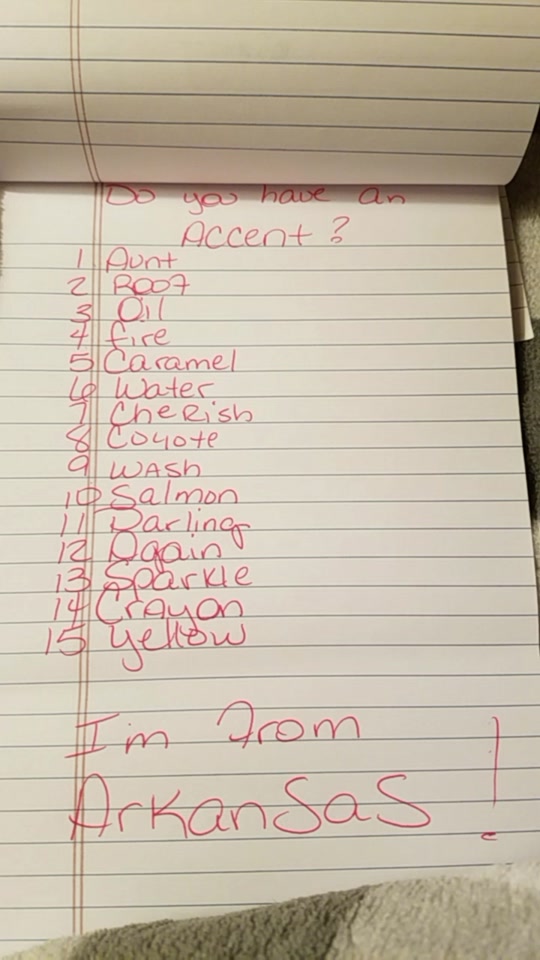 Do you have an
Accent?
1 Aunt
2 Root
3 Oil
4 fire
5 Caramel
6 Water
7 Cherish
8 Coyote
9 WASh
10 Salmon
11 Darling
12 Again
13 Sparkle
14 Crayon
15 Yellow
I'm From
ArkanSaS!